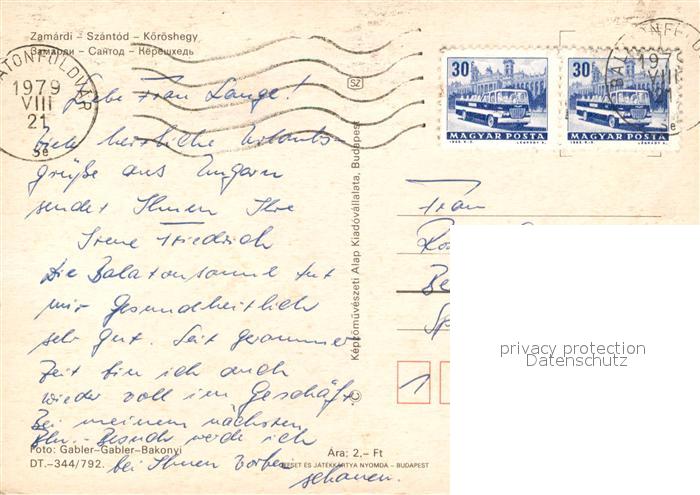 Zamárdi – Szántód – Kőröshegy
Замарди – Сантод – Кёрешхедь
BALATONFÖLDVÁR
1979
VIII
21
Liebe Frau Lange!
Viele herzliche Urlaubs-
grüße aus Ungarn
sendet Ihnen Ihre
Irene Friedrich
Die Balatonsonne tut
mir gesundheitlich
sehr gut. Seit geraumer
Zeit bin ich auch
wieder voll im Geschäft.
Bei meinem nächsten
Bln.- Besuch werde ich
bei Ihnen vorbei
schauen.
Foto: Gabler–Gabler–Bakonyi
DT.–344/792.
Ára: 2,– Ft
OFSET ÉS JÁTÉKKÁRTYA NYOMDA – BUDAPEST
SZ
© Képzőművészeti Alap Kiadóvállalata, Budapest
30
MAGYAR POSTA
30
MAGYAR POSTA
1979
VIII
Frau
1
privacy protection
Datenschutz